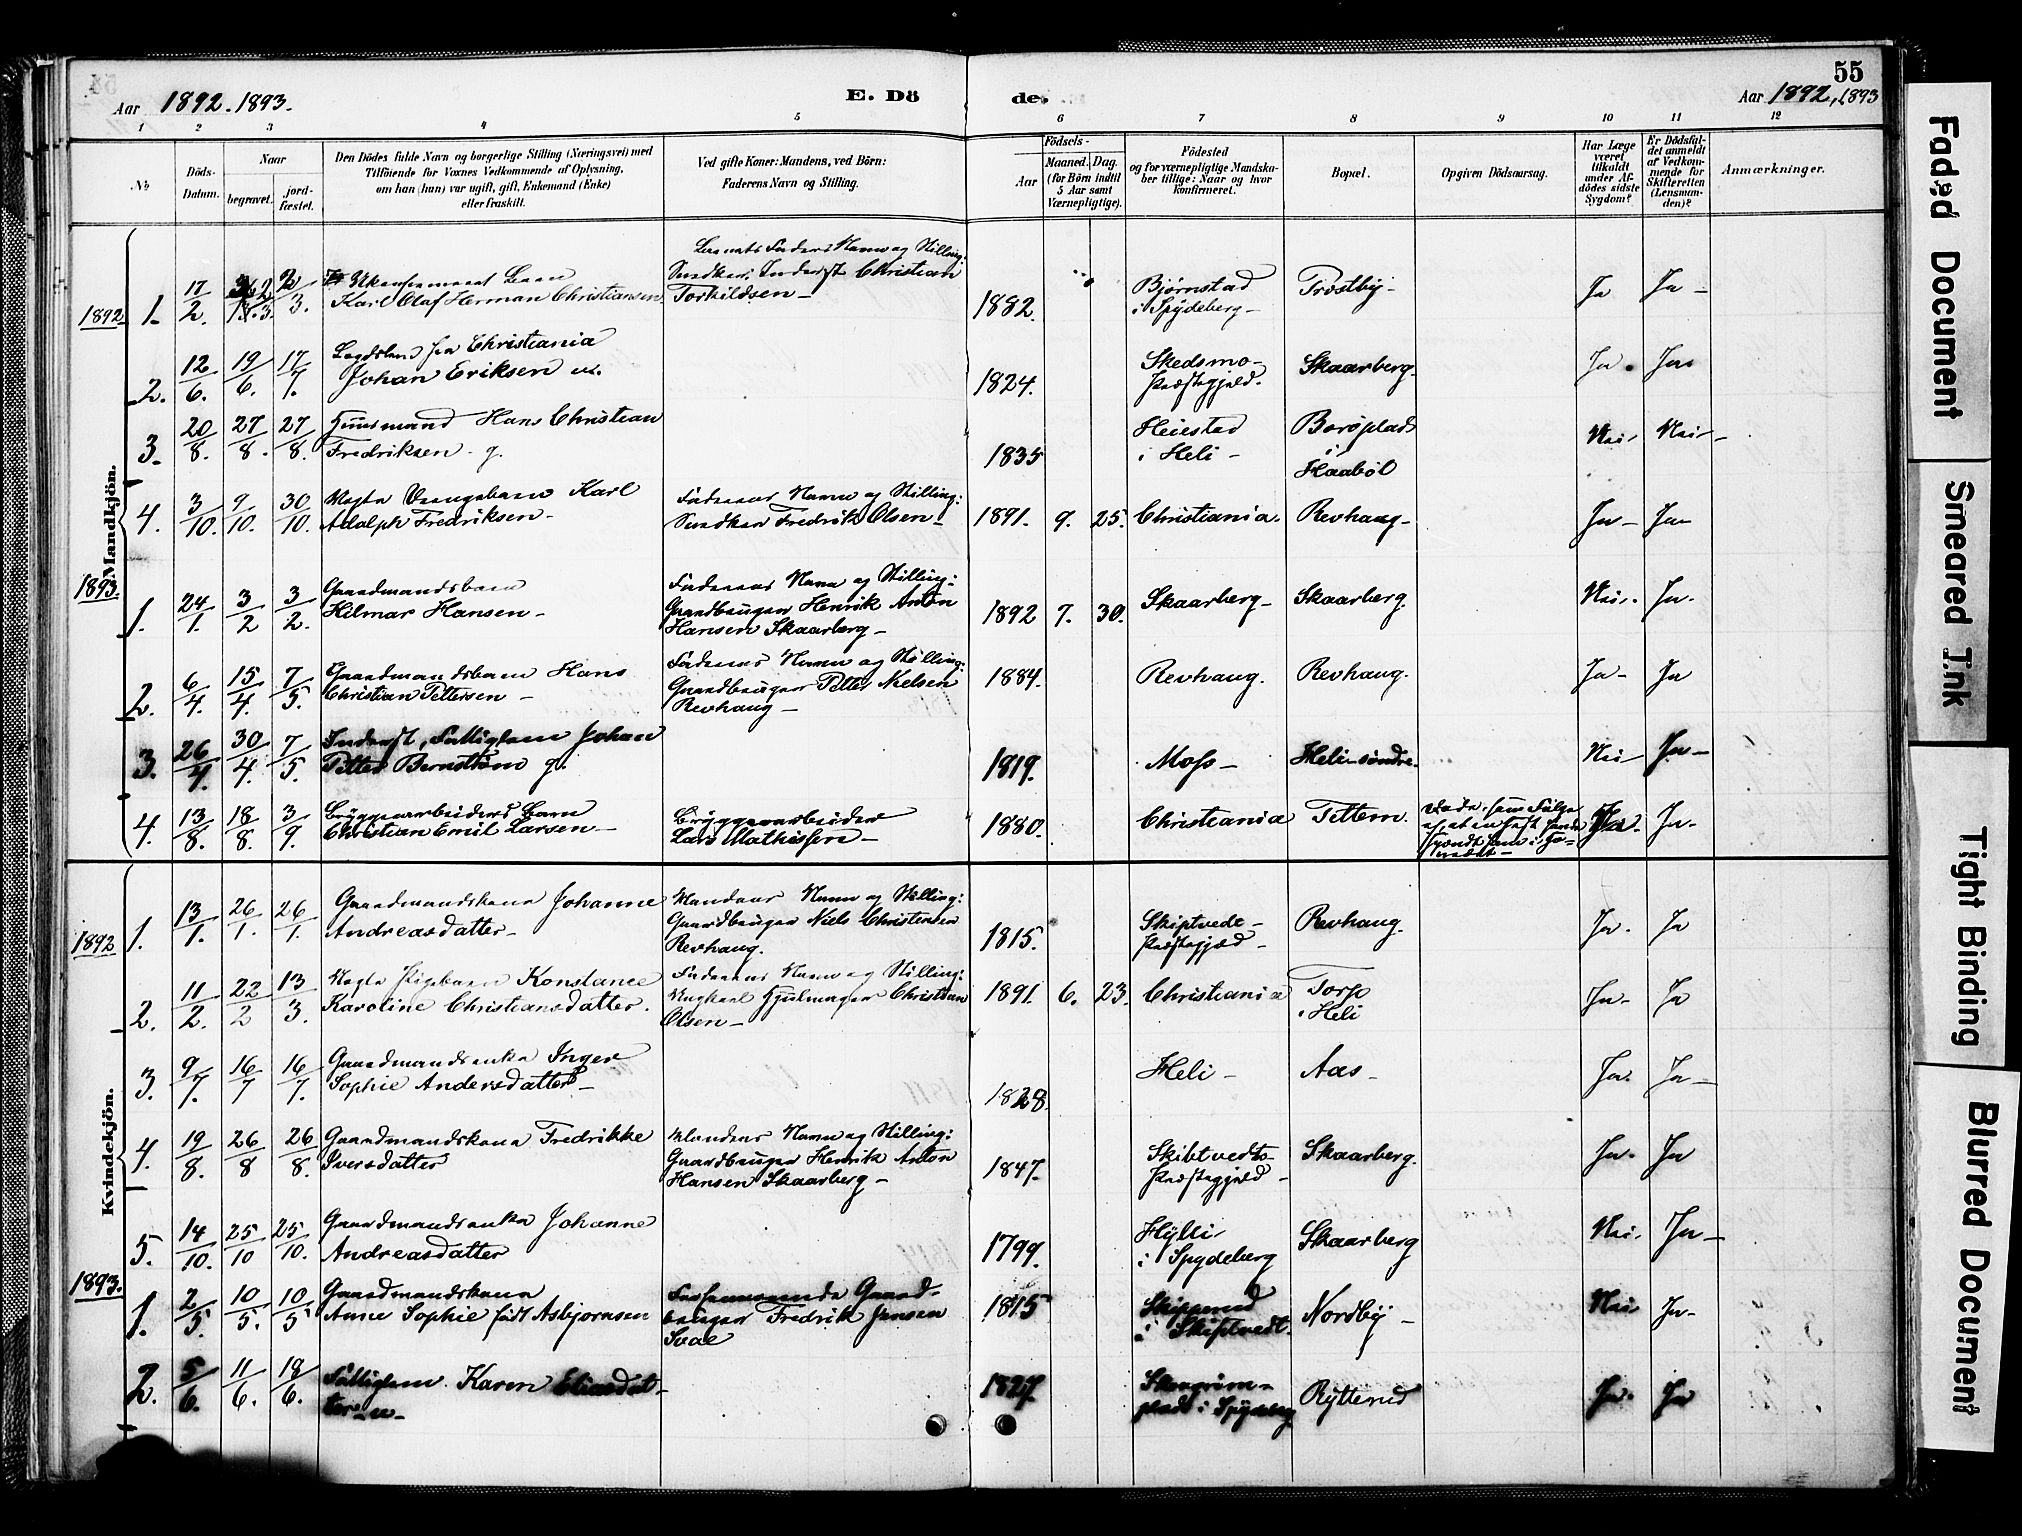 55
Aar 1892. 1893.
E. Dö
de.
Aar 1892, 1893
1 2 3 4 5 6 7 8 9 10 11 12
No
Döds-
Datum.
Naar
begravet.
jord-
fæstet.
Den Dödes fulde Navn og borgerlige Stilling (Næringsvei) med
Tilföiende for Voxnes Vedkommende af Oplysning,
om han (hun) var ugift, gift, Enkemand (Enke)
eller fraskilt.
Ved gifte Koner: Mandens, ved Börn:
Faderens Navn og Stilling.
Födsels-
Aar
Maaned. Dag.
(for Börn indtil
5 Aar samt
Værnepligtige).
Födested
og for værnepligtige Mandska-
ber tillige: Naar og hvor
konfirmeret.
Bopæl.
Opgiven Dödsaarsag.
Har Læge
været
tilkaldt
under Af-
dödes sidste
Sygdom?
Er Dödsfal-
det anmeldt
af Vedkom-
mende for
Skifteretten
(Lensman-
den)?
Anmærkninger.
Mandkjön.
1892
1. 17/2. 2/3.
Ukonfirmeret Barn
Karl Olaf Herman Christiansen
Barnets Faders Navn og Stilling:
Snedker, Inderst Christian
Torkildsen –
1882.
Bjørnstad
i Spydeberg –
Trostby –
Ja Ja –
2. 12/6. 19/6. 17/7.
Lægdslem fra Christiania
Johan Eriksen
1824.
Skedsmo-
Præstegjeld.
Skaarberg.
Ja. Ja
3. 20/8. 27/8. 27/8.
Huusmand Hans Christian
Fredriksen. g.
1835
Heiestad
i Heli –
Borøplads
i
Haabøl
Nei. Nei –
4. 3/10. 9/10. 30/10.
Karl
Adolph Fredriksen –
Faderens Navn og Stilling:
Snedker Fredrik Olsen –
1891. 9. 25.
Christiania.
Revhaug –
Ja – Ja –
1893.
1. 24/1. 3/2 3/2.
Gaardmandsbarn
Hilmar Hansen –
Faderens Navn og Stilling:
Gaardbruger Henrik Anton
Hansen Skaarberg –
1892 7. 30.
Skaarberg – Skaarberg.
Nei. Ja.
2. 6/4. 15/4. 7/5.
Gaardmandsbarn Hans
Christian Pettersen –
Faderens Navn og Stilling:
Gaardbruger Petter Nielsen
Revhaug –
1884.
Revhaug. Revhaug.
Ja – Ja
3. 26/4. 30/4. 7/5.
Inderst, Fattiglem Johan
Petter Bernstrøm g.
1819.
Moss – Heli søndre.
Nei – Ja –
4. 13/8. 18/8. 3/9.
Bryggearbeiders Barn
Christian Emil Larsen –
Bryggearbeider
Lars Mathissen –
1880.
Christiania Tettem.
Ja. Ja.
Kvindekjön.
1892
1. 13/1. 26/1. 26/1.
Gaardmandskone Johanne
Andreasdatter –
Mandens Navn og Stilling:
Gaardbruger Niels Christensen
Revhaug.
1815.
Skiptvedt-
Præstegjeld –
Revhaug.
Ja. Ja
2. 11/2. 22/2 13/3.
Pigebarn Konstance
Karoline Christiansdatter.
Faderens Navn og Stilling:
Ungkarl Hjulmager Christian
Olsen –
1891. 6. 23.
Christiania
Torp
i Heli
Ja – Ja
3. 9/7. 16/7 16/7.
Gaardmandsenke Inger
Sophie Andersdatter –
1828
Heli – Aas –
Ja. Ja –
4. 19/8. 26/8 26/8.
Gaardmandskone Fredrikke
Iversdatter
Mandens Navn og Stilling:
Gaardbruger Henrik Anton
Hansen Skaarberg –
1847.
Skibtvedts-
Præstegjeld –
Skaarberg.
Ja. Ja
5. 14/10. 25/10 25/10.
Gaardmandsenke Johanne
Andreasdatter
1799.
Hylli
i Spydeberg
Skaarberg
Nei. Ja –
1893.
1. 2/5. 10/5. 10/5
Gaardmandskone
Anne Sophie født Asbjørnsen
Forhenværende Gaard-
bruger Fredrik Jensen
Svae
1815
Skipperud
i Skiptvedt.
Nordby –
Nei Ja –
2. 5/6. 11/6. 18/6.
Fattiglem. Karen Eliasdat-
ter
1827.
plads i Spydeberg
Rytterud
Ja. Ja
Faded Document
Smeared Ink
Tight Binding
Blurred Document